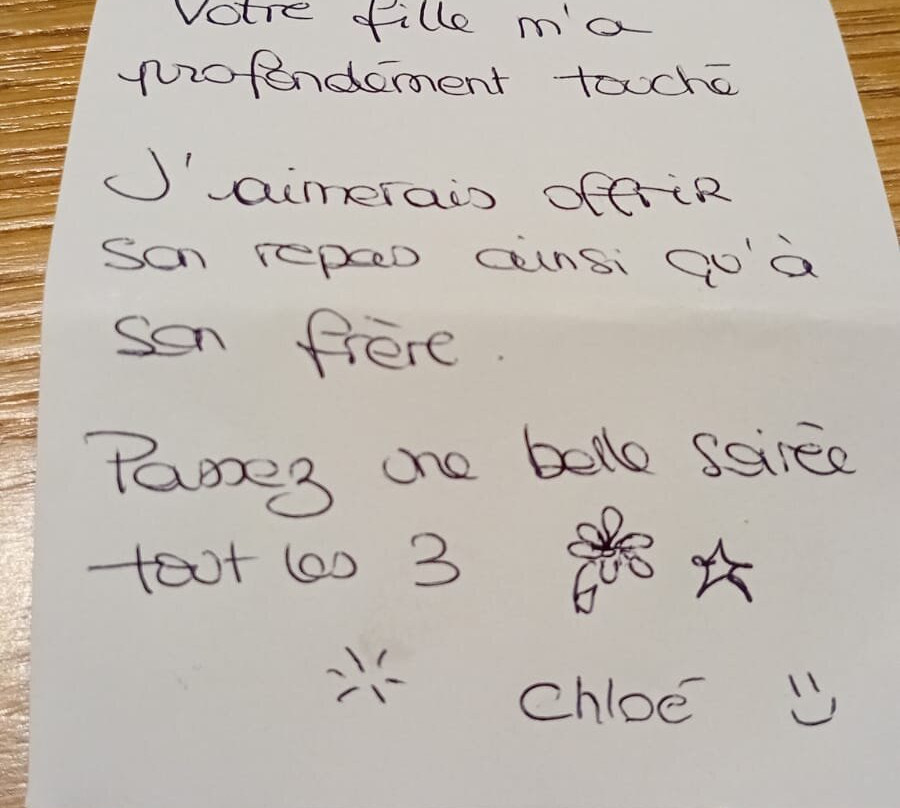 Votre fille m'a
profondément touché
J'aimerais offrir
son repas ainsi qu'à
son frère.
Passez une belle soirée
tout les 3
Chloé